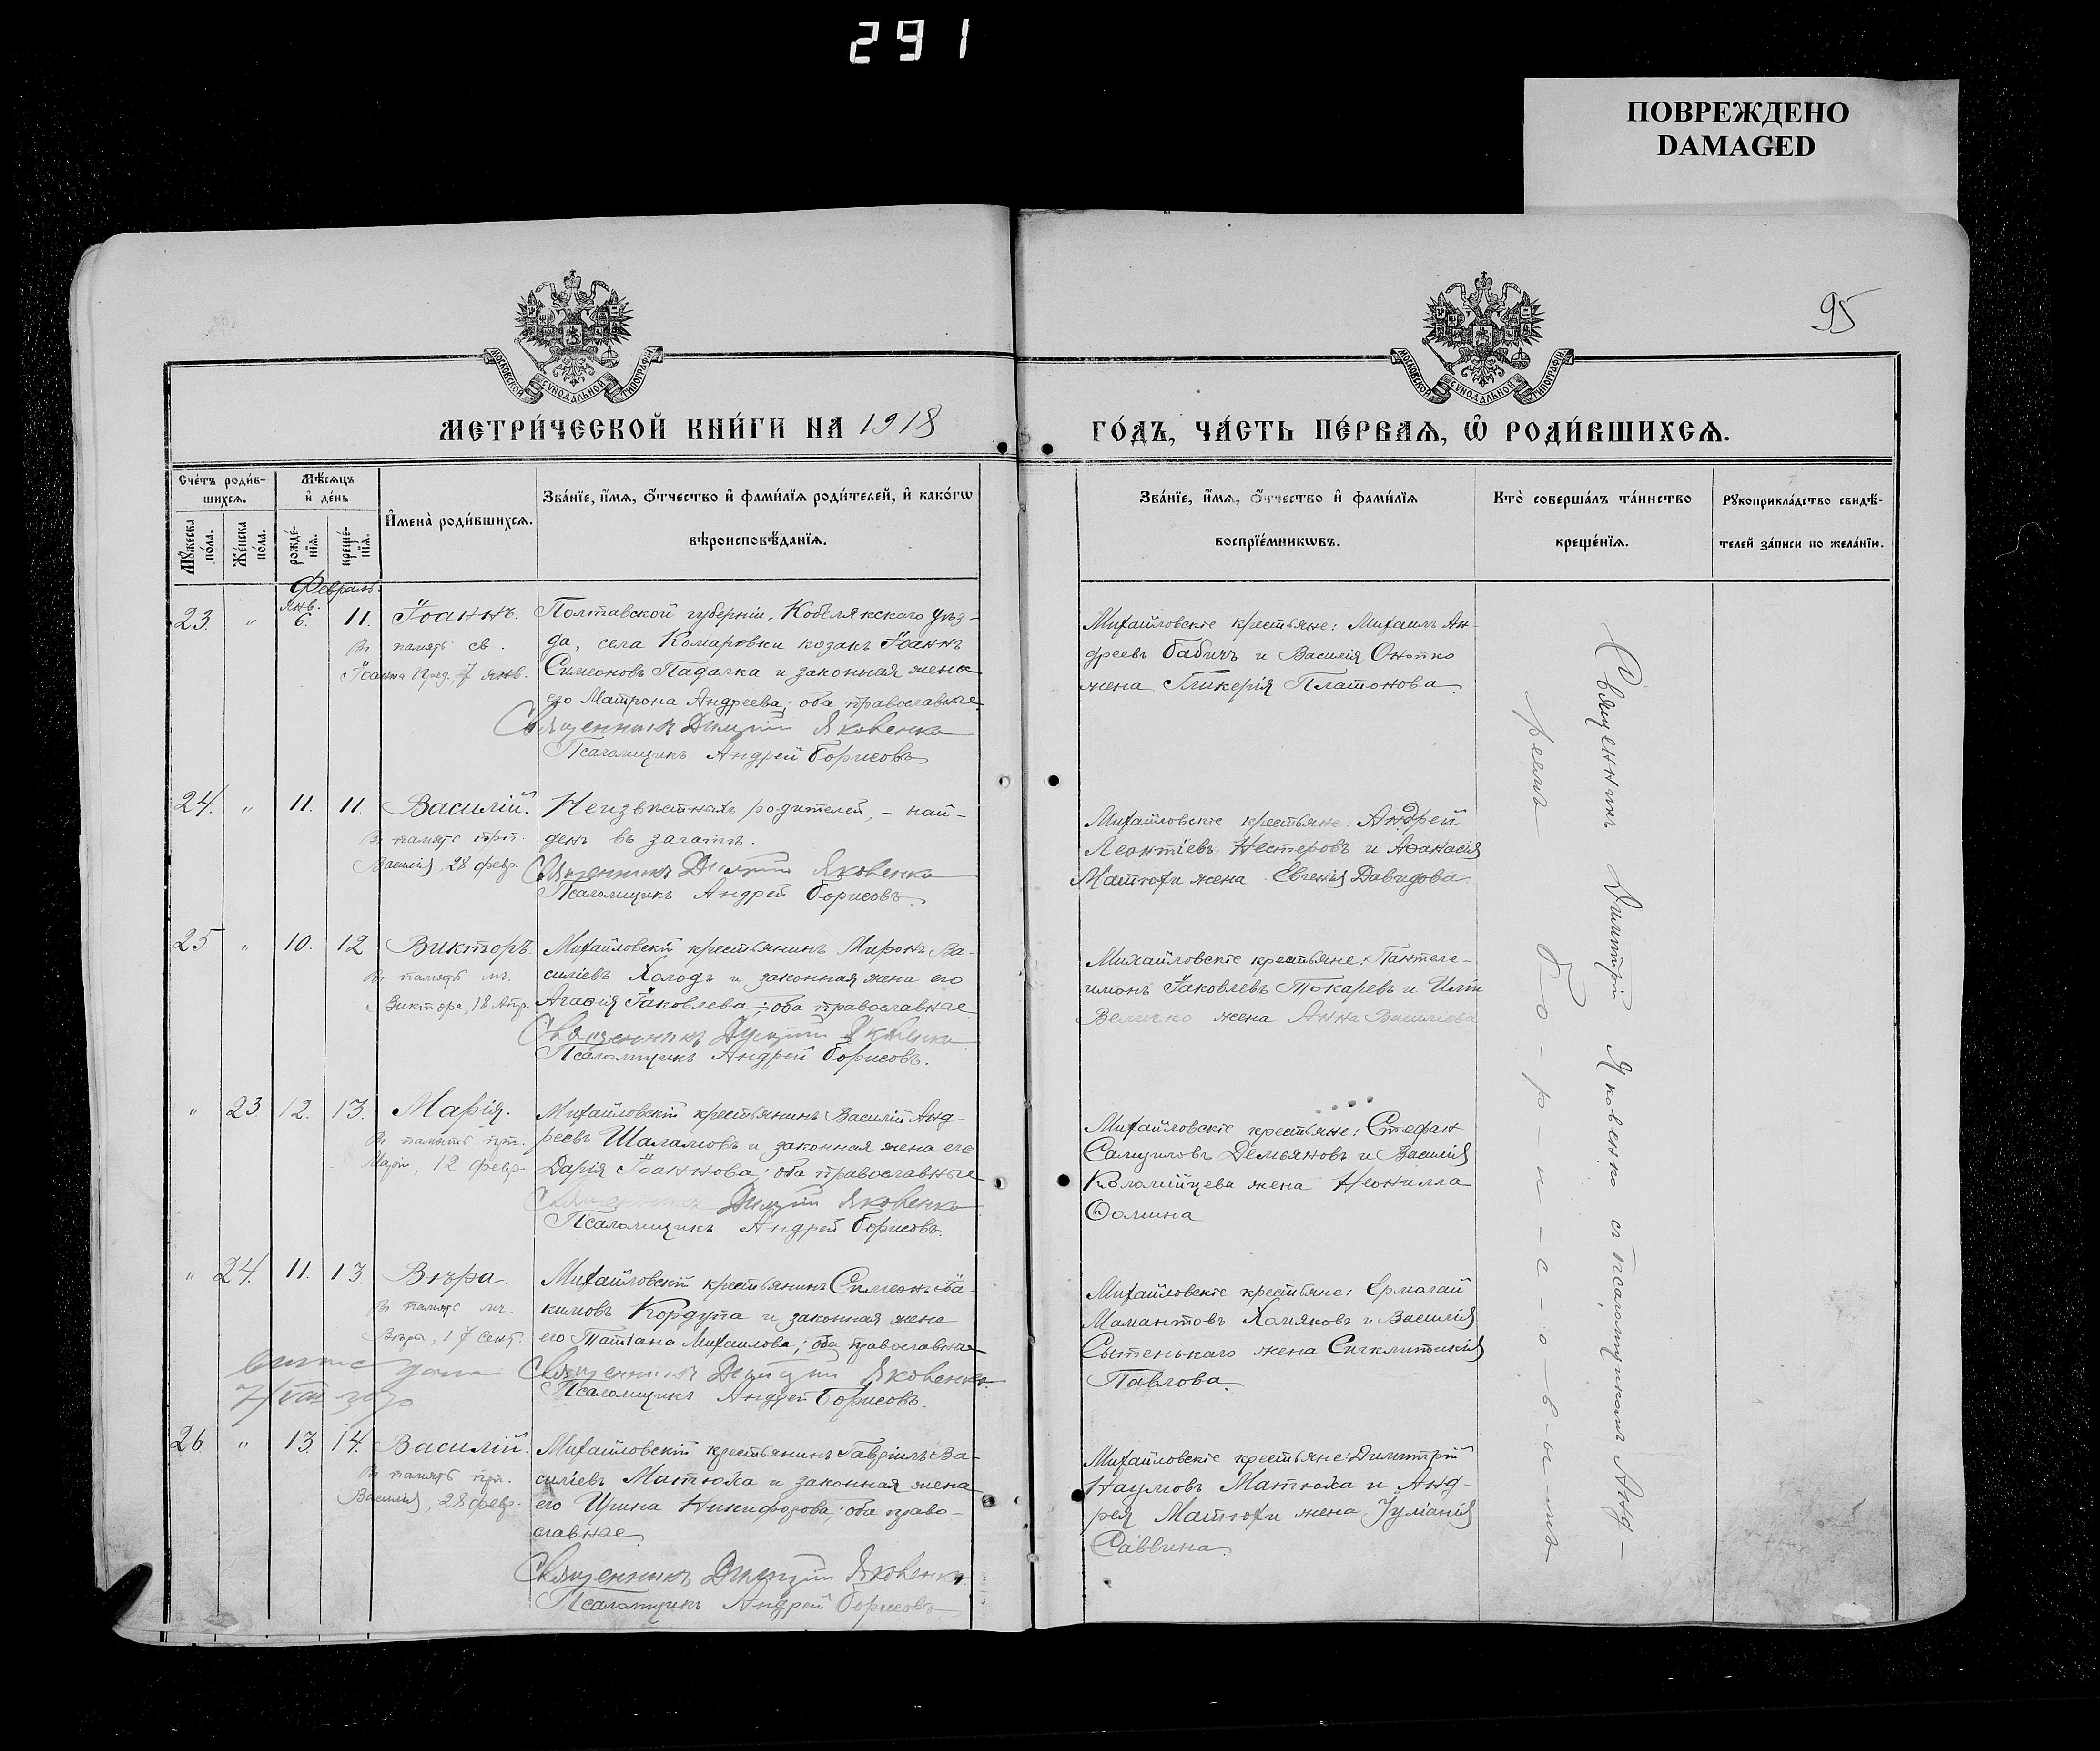 291
ПОВРЕЖДЕНО
DAMAGED
95
МОСКОВСКОЙ СУНОДАЛЬНОЙ ТИПОГРАФІИ
МОСКОВСКОЙ СУНОДАЛЬНОЙ ТИПОГРАФІИ
МЕТРИ́ЧЕСКОЙ КНИ́ГИ НА 1918
ГО́ДЪ, ЧА́СТЬ ПЕ́РВАѦ, Ѡ РОДИ́ВШИХСѦ.
Сче́тъ роди́в-
шихсѧ.
Мꙋ́жеска по́ла.
Же́нска по́ла.
Мѣ́сѧцъ
и҆ де́нь
рожде́-
нїѧ.
креще́-
нїѧ.
И҆мена̀ роди́вшихсѧ.
Зва́нїе, и҆́мѧ, ѻ҆́тчество и҆ фами́лїѧ роди́телей, и҆ како́гѡ
вѣроисповѣ́данїѧ.
Зва́нїе, и҆́мѧ, ѻ҆́тчество и҆ фами́лїѧ
воспрїе́мникѡвъ.
Кто̀ соверша́лъ та́инство
креще́нїѧ.
Рꙋкоприкла́дство свидѣ́-
телей за́писи по жела́нїю.
Февраль.
23. " Янв. 6. 11. Іоаннъ.
Въ память св.
Іоанна Пред. 7 янв.
Полтавской губерніи, Кобелякскаго уѣз-
да, села Комаровки козакъ Іоаннъ
Симеоновъ Падалка и законная жена
его Матрона Андреева; оба православные
Священникъ Димитрій Яковенко
Псаломщикъ Андрей Борисовъ
Михайловскіе крестьяне: Михаилъ Ан-
дреевъ Бабичъ и Василія Онопко
жена Гликерія Платонова.
24. " 11. 11. Василій.
Въ память прп.
Василія, 28 февр.
Неизвѣстныхъ родителей, - най-
денъ въ загатѣ.
Священникъ Димитрій Яковенко
Псаломщикъ Андрей Борисовъ.
Михайловскіе крестьяне: Андрей
Леонтіевъ Нестеровъ и Аѳанасія
Матюхи жена Евгенія Давидова
25 " 10. 12 Викторъ.
Въ память мч.
Виктора, 18 Апр.
Михайловскій крестьянинъ Миронъ Ва-
силіевъ Холодъ и законная жена его
Агаѳія Іаковлева; оба православные
Священникъ Димитрій Яковенко
Псаломщикъ Андрей Борисовъ.
Михайловскіе крестьяне: Пантеле-
имонъ Іаковлевъ Токаревъ и Иліи
Величко жена Анна Василіова
" 23 12. 13. Марія.
Въ память прп.
Маріи, 12 февр.
Михайловскій крестьянинъ Василій Анд-
реевъ Шаламовъ и законная жена его
Дарія Іоаннова; оба православные
Священникъ Димитрій Яковенко
Псаломщикъ Андрей Борисовъ.
Михайловскіе крестьяне: Стефан
Самуиловъ Демьяновъ и Василія
Коломійцева жена Неонилла
Ѳомина
" 24. 11. 13. Вѣра.
Въ память мч.
Вѣры, 17 Сент.
Михайловскій крестьянинъ Симеонъ Іа-
кимовъ Кордупа и законная жена
его Татіана Михаилова; оба православные
Священникъ Димитрій Яковенко.
Псаломщикъ Андрей Борисовъ.
Михайловскіе крестьяне: Ермолай
Мамантовъ Хомяковъ и Василія
Сытенькаго жена Синклитикія
Павлова.
26 " 13 14. Василій.
Въ память прп.
Василія, 28 февр.
Михайловскій крестьянинъ Гавріилъ Ва-
силіевъ Матюха и законная жена
его Ирина Никифорова; оба право-
славные
Священникъ Димитрій Яковенко
Псаломщикъ Андрей Борисовъ
Михайловскіе крестьяне: Димитрій
Наумовъ Матюха и Анд-
рея Матюхи жена Іуліанія
Саввина.
Священникъ Димитрій Яковенко съ псаломщикомъ Анд-
реемъ Бо-р-и-с-о-в-ы-мъ.